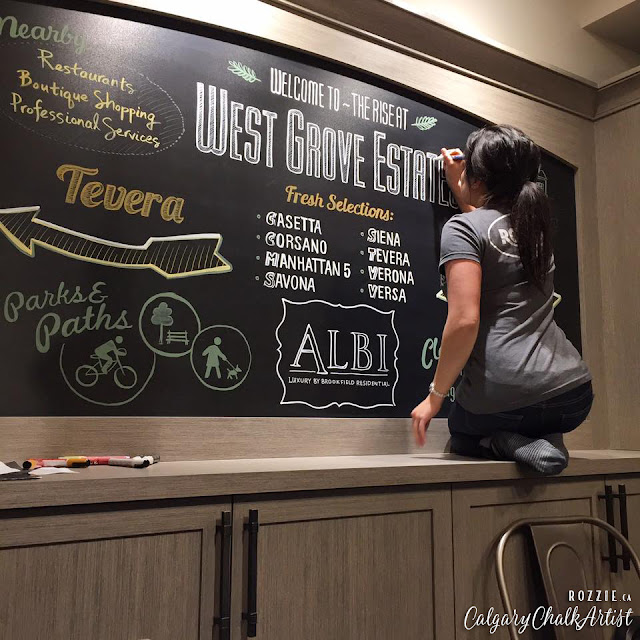 Nearby
Restaurants
Boutique Shopping
Professional Services
WELCOME TO ~ THE RISE AT
WEST GROVE ESTATE
Tevera
Fresh Selections:
CASETTA
CORSANO
MANHATTAN 5
SAVONA
SIENA
TEVERA
VERONA
VERSA
Parks &
Paths
ALBI
LUXURY BY BROOKFIELD RESIDENTIAL
ROZZIE.CA
CalgaryChalkArtist